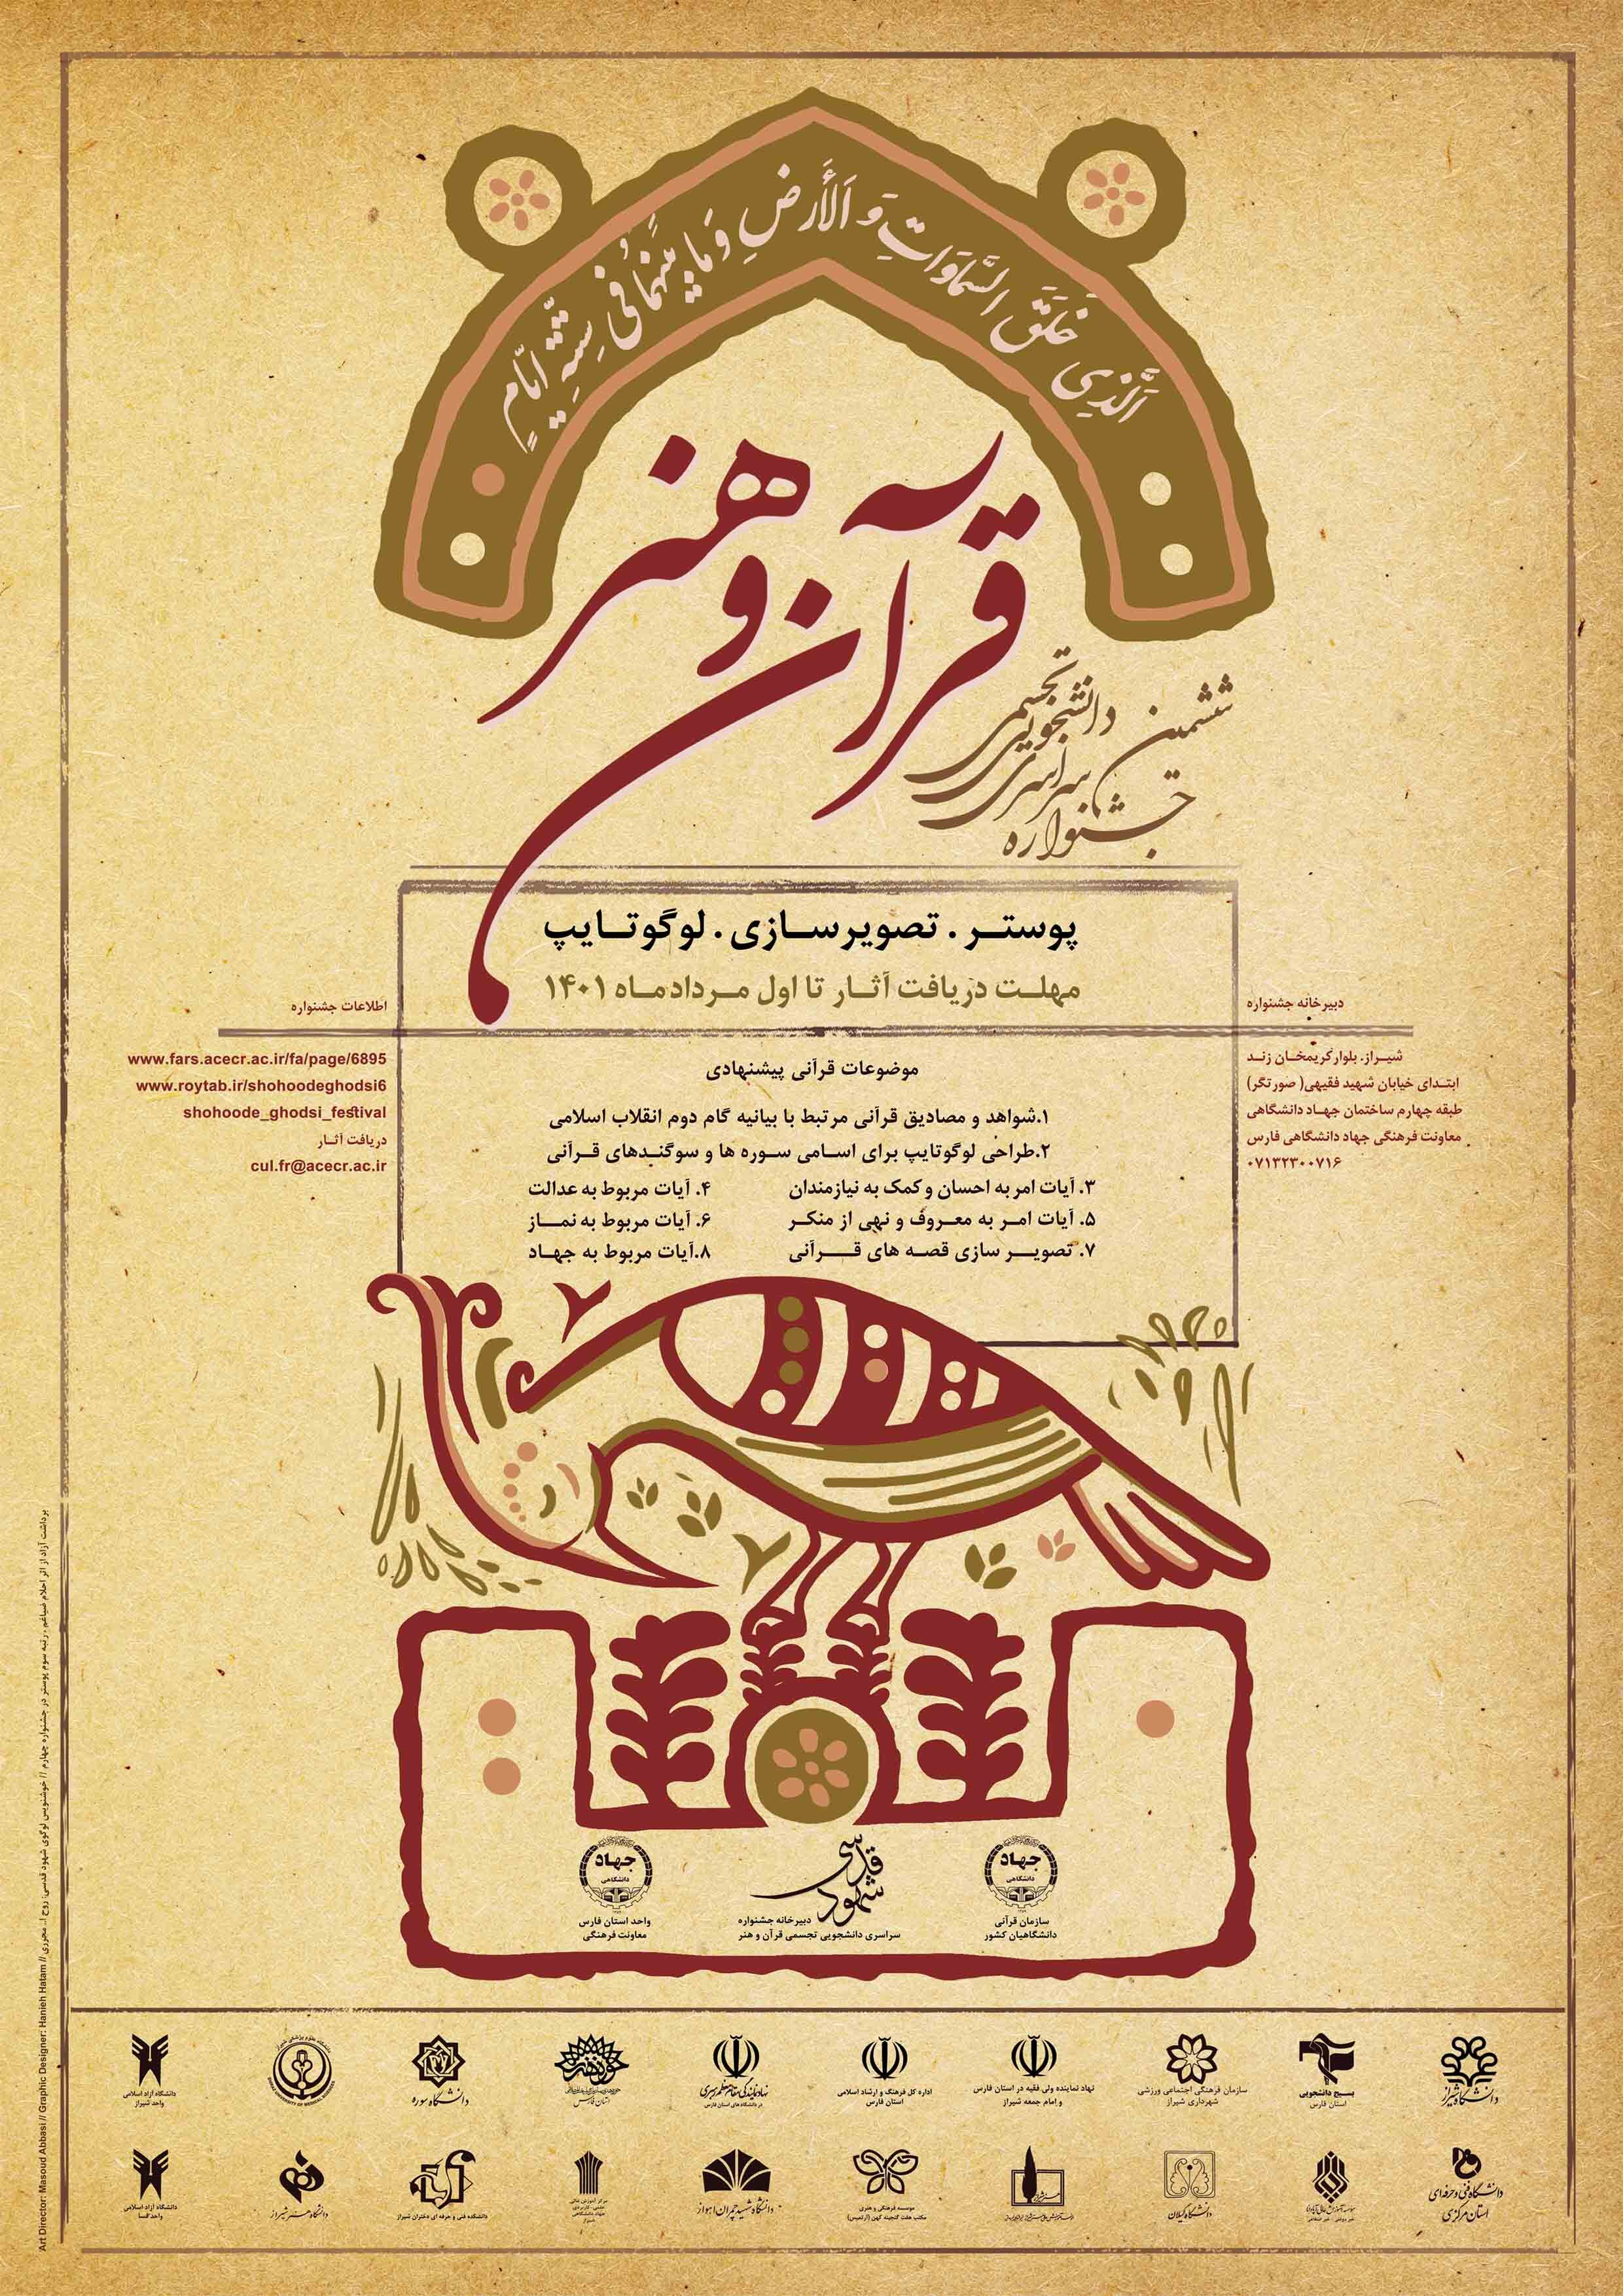 الَّذِي خَلَقَ السَّمَاوَاتِ وَ الْأَرْضِ وَ مَا بَيْنَهُمَا فِي سِتَّةِ أَيَّامٍ
قرآن و هنر
ششمین
جشنواره
سراسری
دانشجویی
تجسمی
پوستر . تصویرسازی . لوگوتایپ
مهلت دریافت آثار تا اول مردادماه ۱۴۰۱
دبیرخانه جشنواره
شیراز. بلوار کریمخان زند
ابتدای خیابان شهید فقیهی( صورتگر)
طبقه چهارم ساختمان جهاد دانشگاهی
معاونت فرهنگی جهاد دانشگاهی فارس
۰۷۱۳۲۳۰۰۷۱۶
موضوعات قرآنی پیشنهادی
۱.شواهد و مصادیق قرآنی مرتبط با بیانیه گام دوم انقلاب اسلامی
۲.طراحی لوگوتایپ برای اسامی سوره ها و سوگندهای قرآنی
۳. آیات امر به احسان و کمک به نیازمندان
۴. آیات مربوط به عدالت
۵. آیات امر به معروف و نهی از منکر
۶. آیات مربوط به نماز
۷. تصویر سازی قصه های قرآنی
۸.آیات مربوط به جهاد
اطلاعات جشنواره
www.fars.acecr.ac.ir/fa/page/6895
www.roytab.ir/shohoodeghodsi6
shohoode_ghodsi_festival
دریافت آثار
cul.fr@acecr.ac.ir
جهاد
دانشگاهی
سازمان قرآنی
دانشگاهیان کشور
شهود قدسی
دبیرخانه جشنواره
سراسری دانشجویی تجسمی قرآن و هنر
جهاد
دانشگاهی
واحد استان فارس
معاونت فرهنگی
دانشگاه شیراز
بسیج دانشجویی
استان فارس
سازمان فرهنگی اجتماعی ورزشی
شهرداری شیراز
نهاد نماینده ولی فقیه در استان فارس
و امام جمعه شیراز
اداره کل فرهنگ و ارشاد اسلامی
استان فارس
نهاد نمایندگی مقام معظم رهبری
در دانشگاه های استان فارس
حوزه هنری
استان فارس
دانشگاه سوره
دانشگاه آزاد اسلامی
واحد شیراز
دانشگاه فنی و حرفه ای
استان مرکزی
دانشگاه گیلان
موسسه فرهنگی و هنری
مکتب هفت گنجینه کهن (آرتمیس)
دانشگاه شهید چمران اهواز
مرکز آموزش عالی
علمی کاربردی
جهاد دانشگاهی
شیراز
دانشکده فنی و حرفه ای دختران شیراز
دانشگاه هنر شیراز
دانشگاه آزاد اسلامی
واحد فسا
Art Director: Masoud Abbasi // Graphic Designer: Hanieh Hatam //